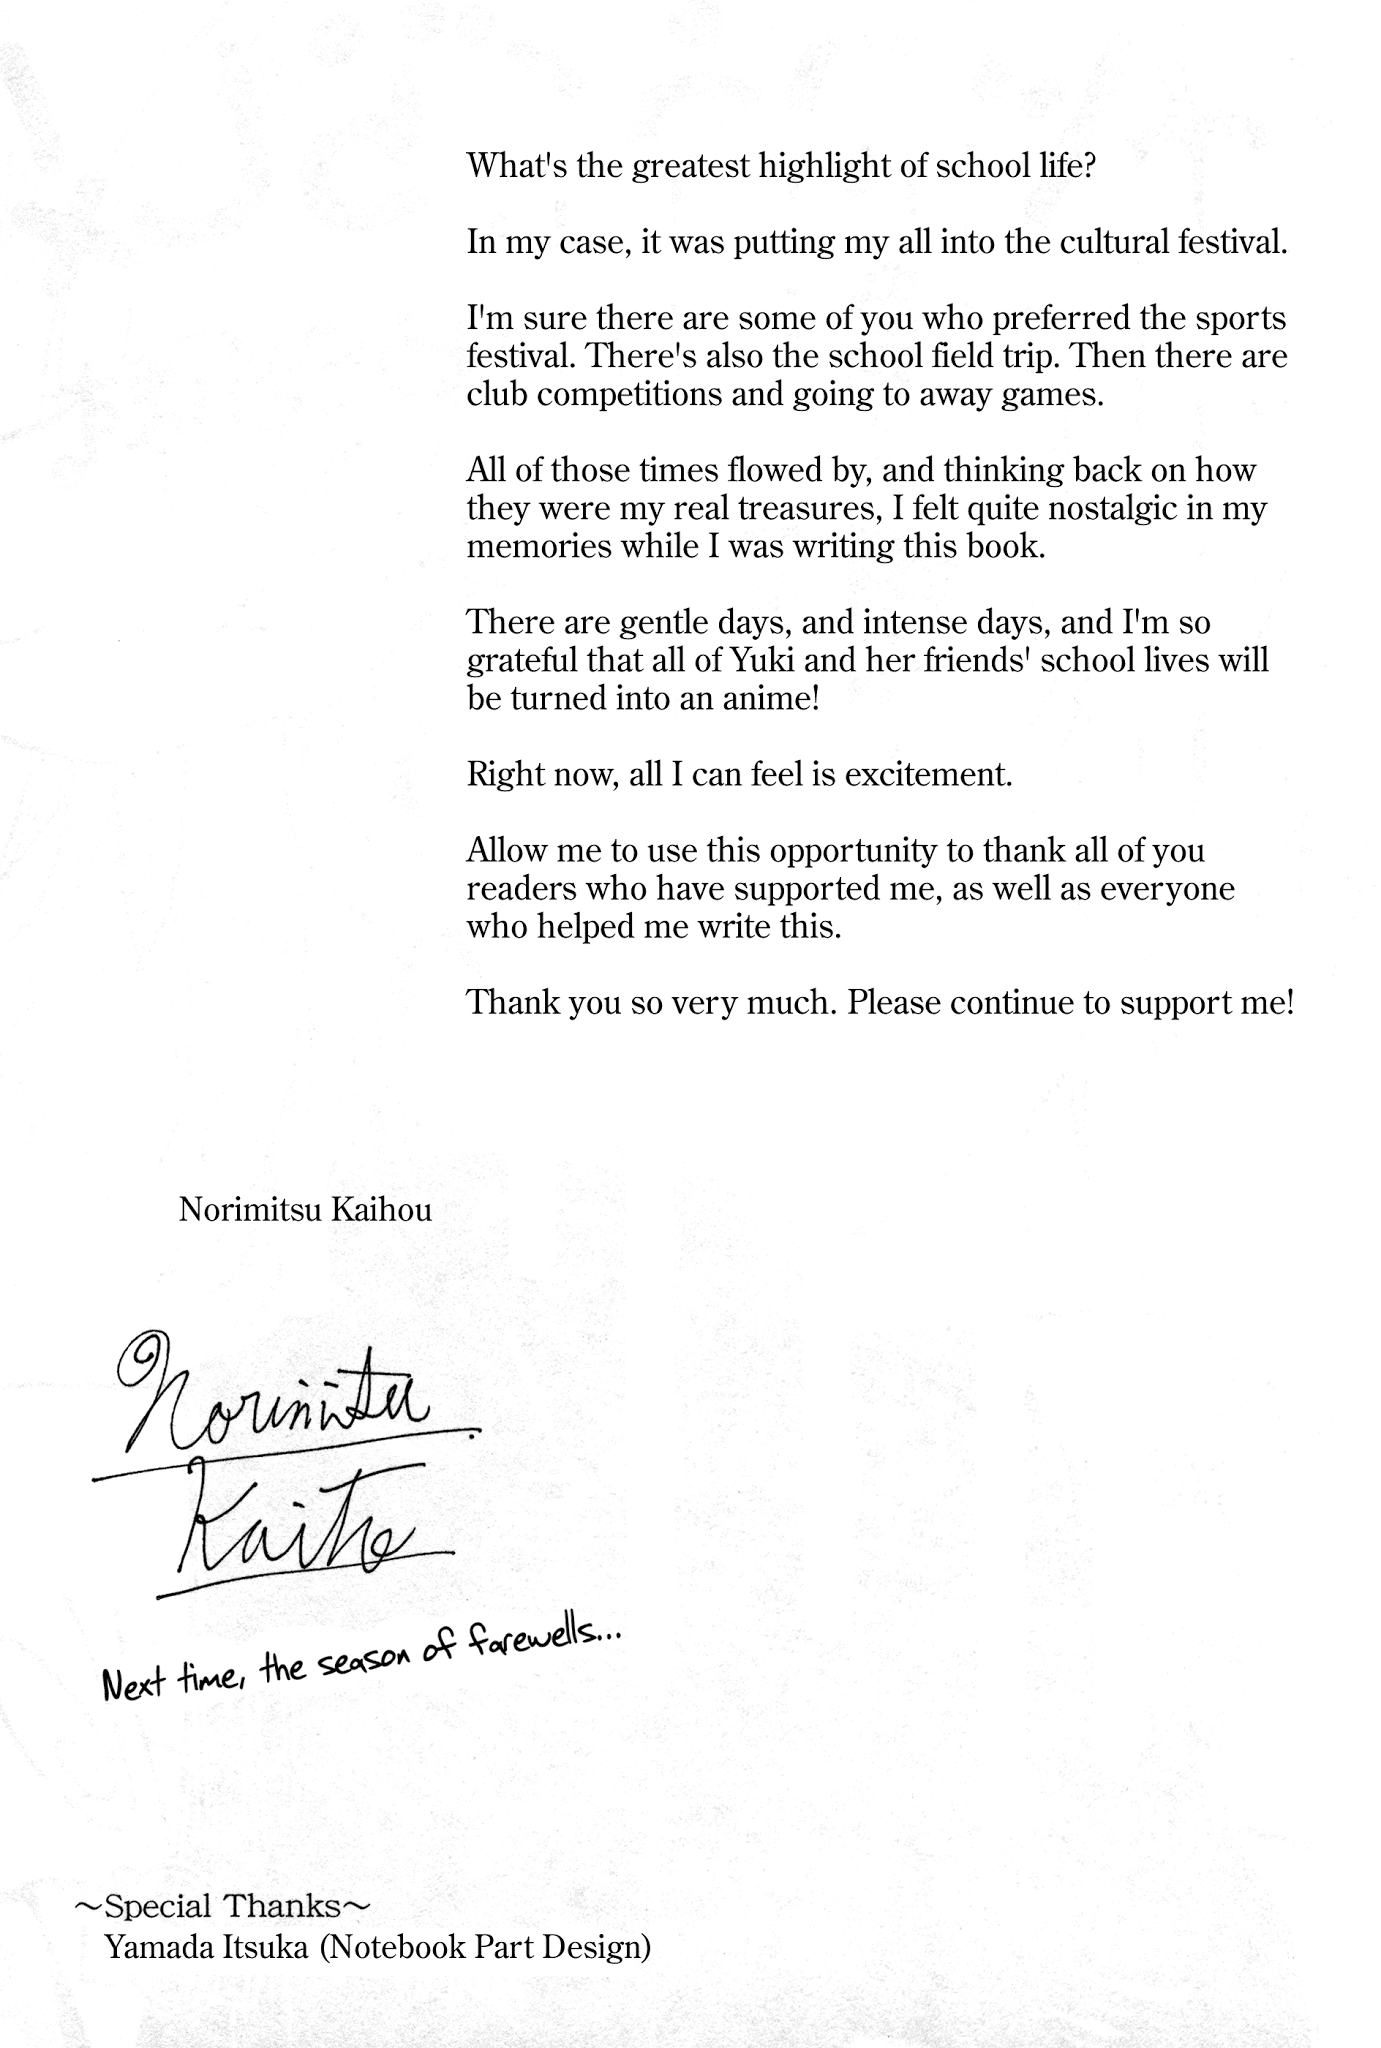 What's the greatest highlight of school life?
In my case, it was putting my all into the cultural festival.
I'm sure there are some of you who preferred the sports
festival. There's also the school field trip. Then there are
club competitions and going to away games.
All of those times flowed by, and thinking back on how
they were my real treasures, I felt quite nostalgic in my
memories while I was writing this book.
There are gentle days, and intense days, and I'm so
grateful that all of Yuki and her friends' school lives will
be turned into an anime!
Right now, all I can feel is excitement.
Allow me to use this opportunity to thank all of you
readers who have supported me, as well as everyone
who helped me write this.
Thank you so very much. Please continue to support me!
Norimitsu Kaihou
Norimitsu
Kaiho
Next time, the season of farewells...
～Special Thanks～
Yamada Itsuka (Notebook Part Design)